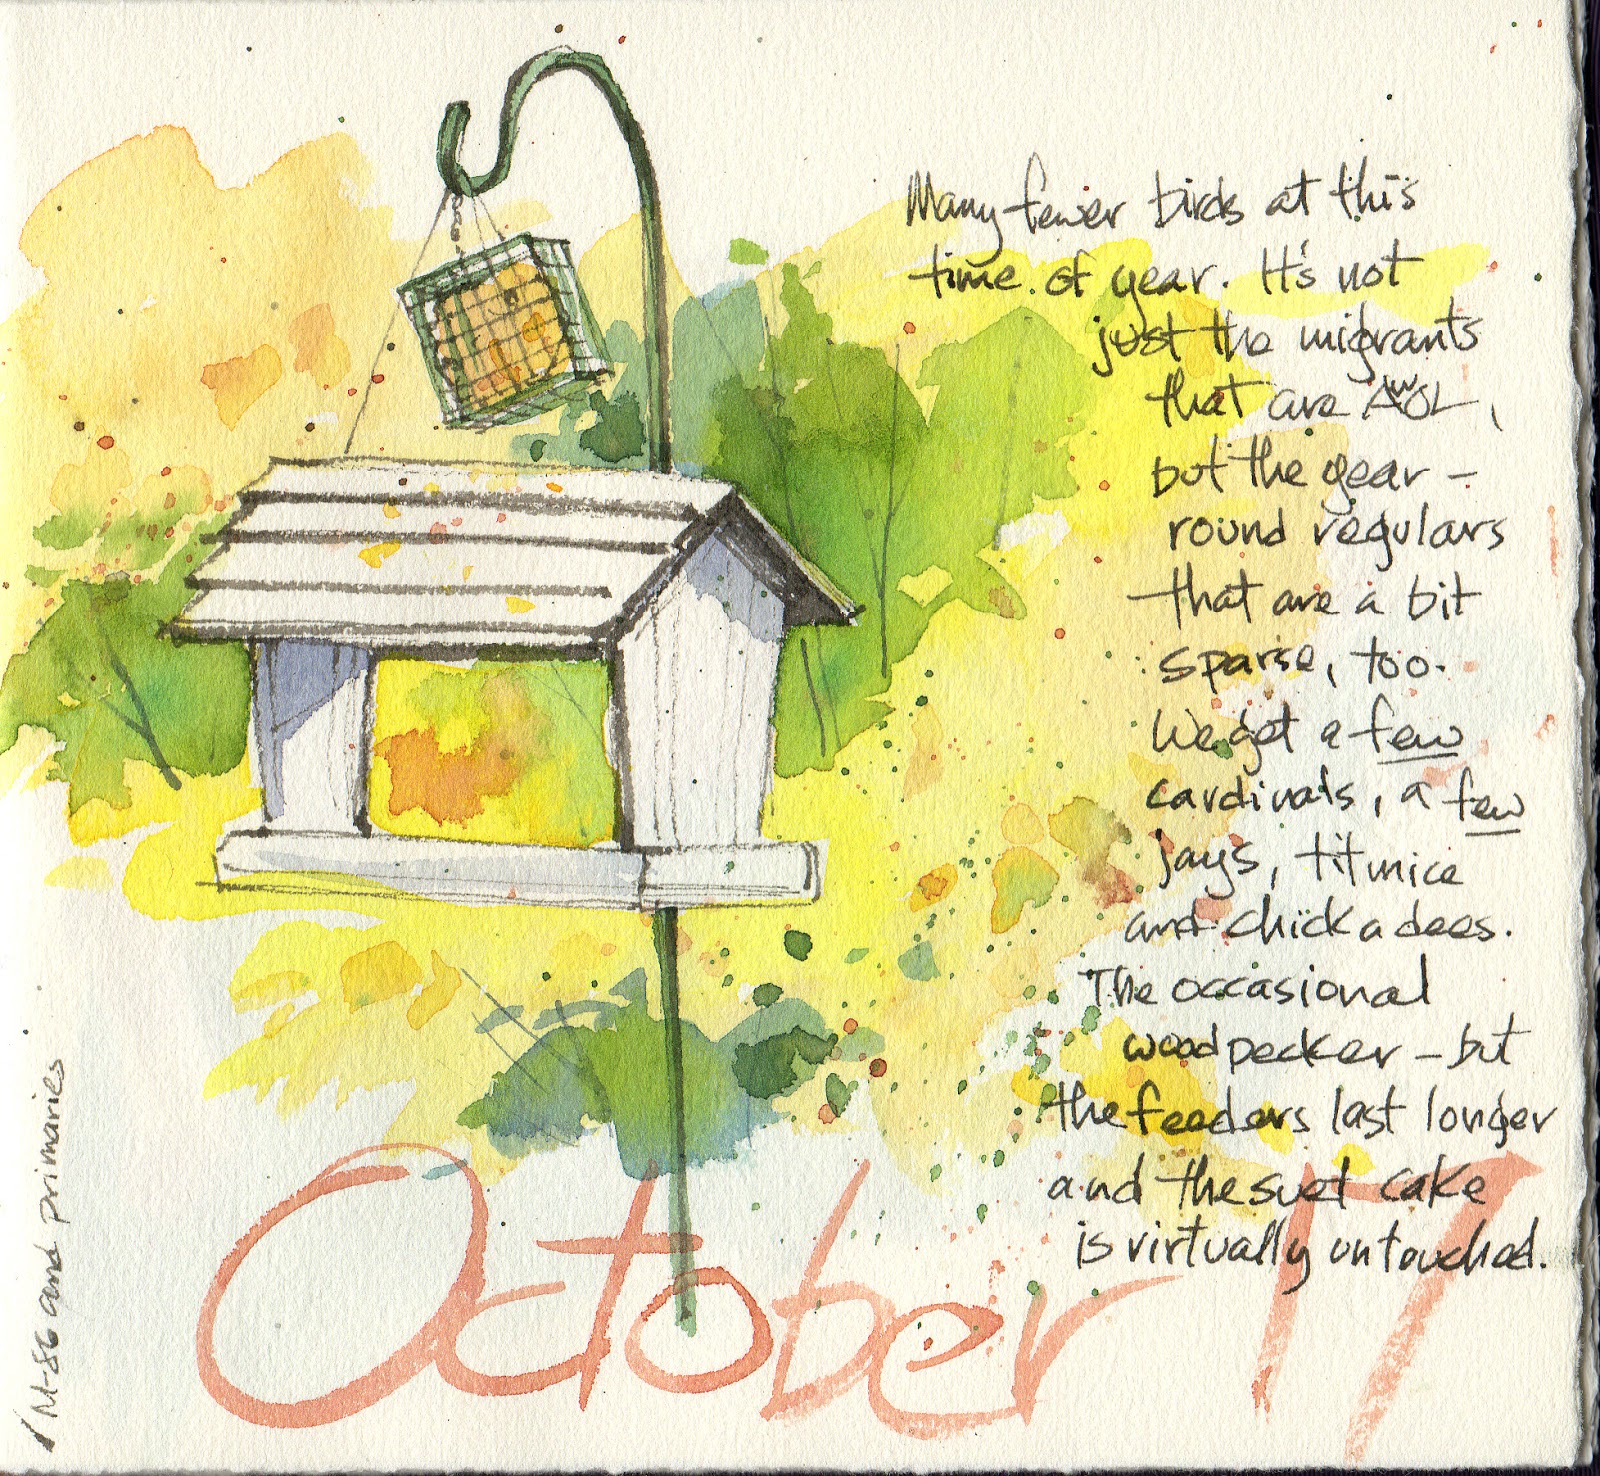 Many fewer birds at this
time of year. It's not
just the migrants
that are AWOL,
but the year-
round regulars
that are a bit
sparse, too.
We get a few
cardinals, a few
jays, titmice
and chickadees.
The occasional
woodpecker - but
the feeders last longer
and the suet cake
is virtually untouched.
October 17
M-86 and primaries